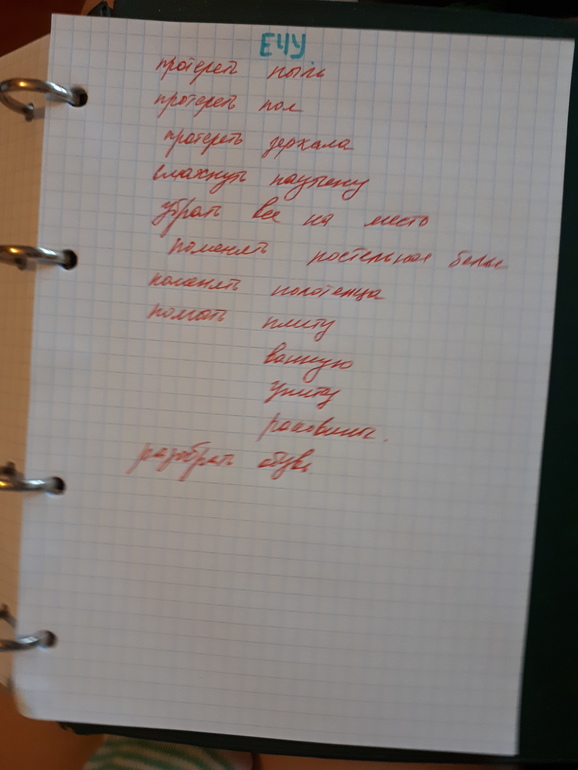 ЕЧУ
протереть пыль
протереть пол
протереть зеркала
смахнуть паутину
убрать все на место
поменять постельное белье
поменять полотенца
помыть плиту
ванную
раковины.
разобрать обувь